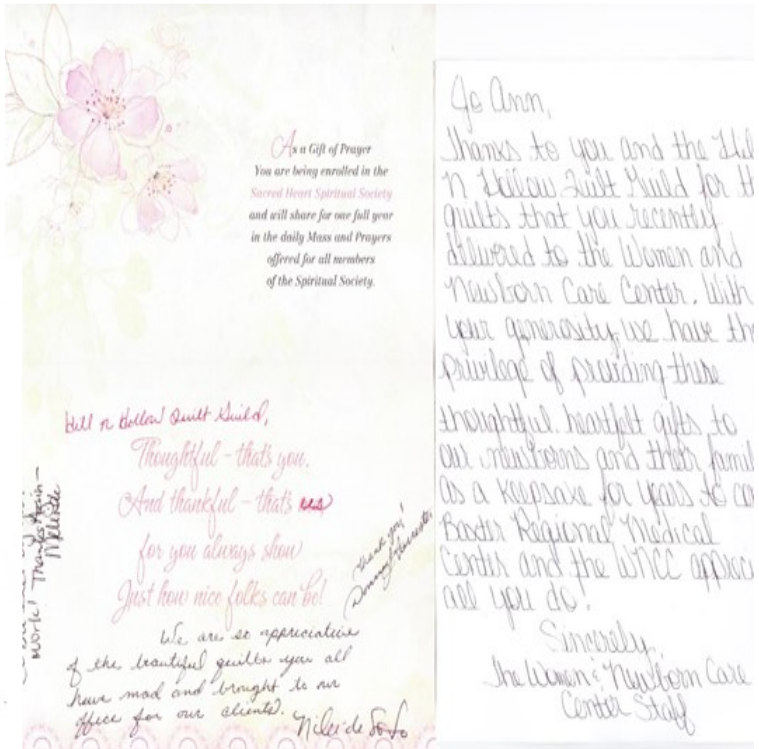 As a Gift of Prayer
You are being enrolled in the
Sacred Heart Spiritual Society
and will share for one full year
in the daily Mass and Prayers
offered for all members
of the Spiritual Society.
Hill n Hollow Quilt Guild,
Thoughtful - that's you,
And thankful - that's us
for you always show
Just how nice folks can be!
work! Thanks Again -
thank you!
We are so appreciative
of the beautiful quilts you all
have mad and brought to our
office for our clients.
Jo Ann,
Thanks to you and the Hil
n Hollow Quilt Guild for th
quilts that you recently
delivered to the Women and
Newborn Care Center. With
your generosity, we have the
privilege of providing these
thoughtful, heartfelt gifts to
our newborns and their famil
as a keepsake for years to co
Baxter Regional Medical
Center and the WNCC appreci
all you do.
Sincerely,
The Women & Newborn Care
Center Staff